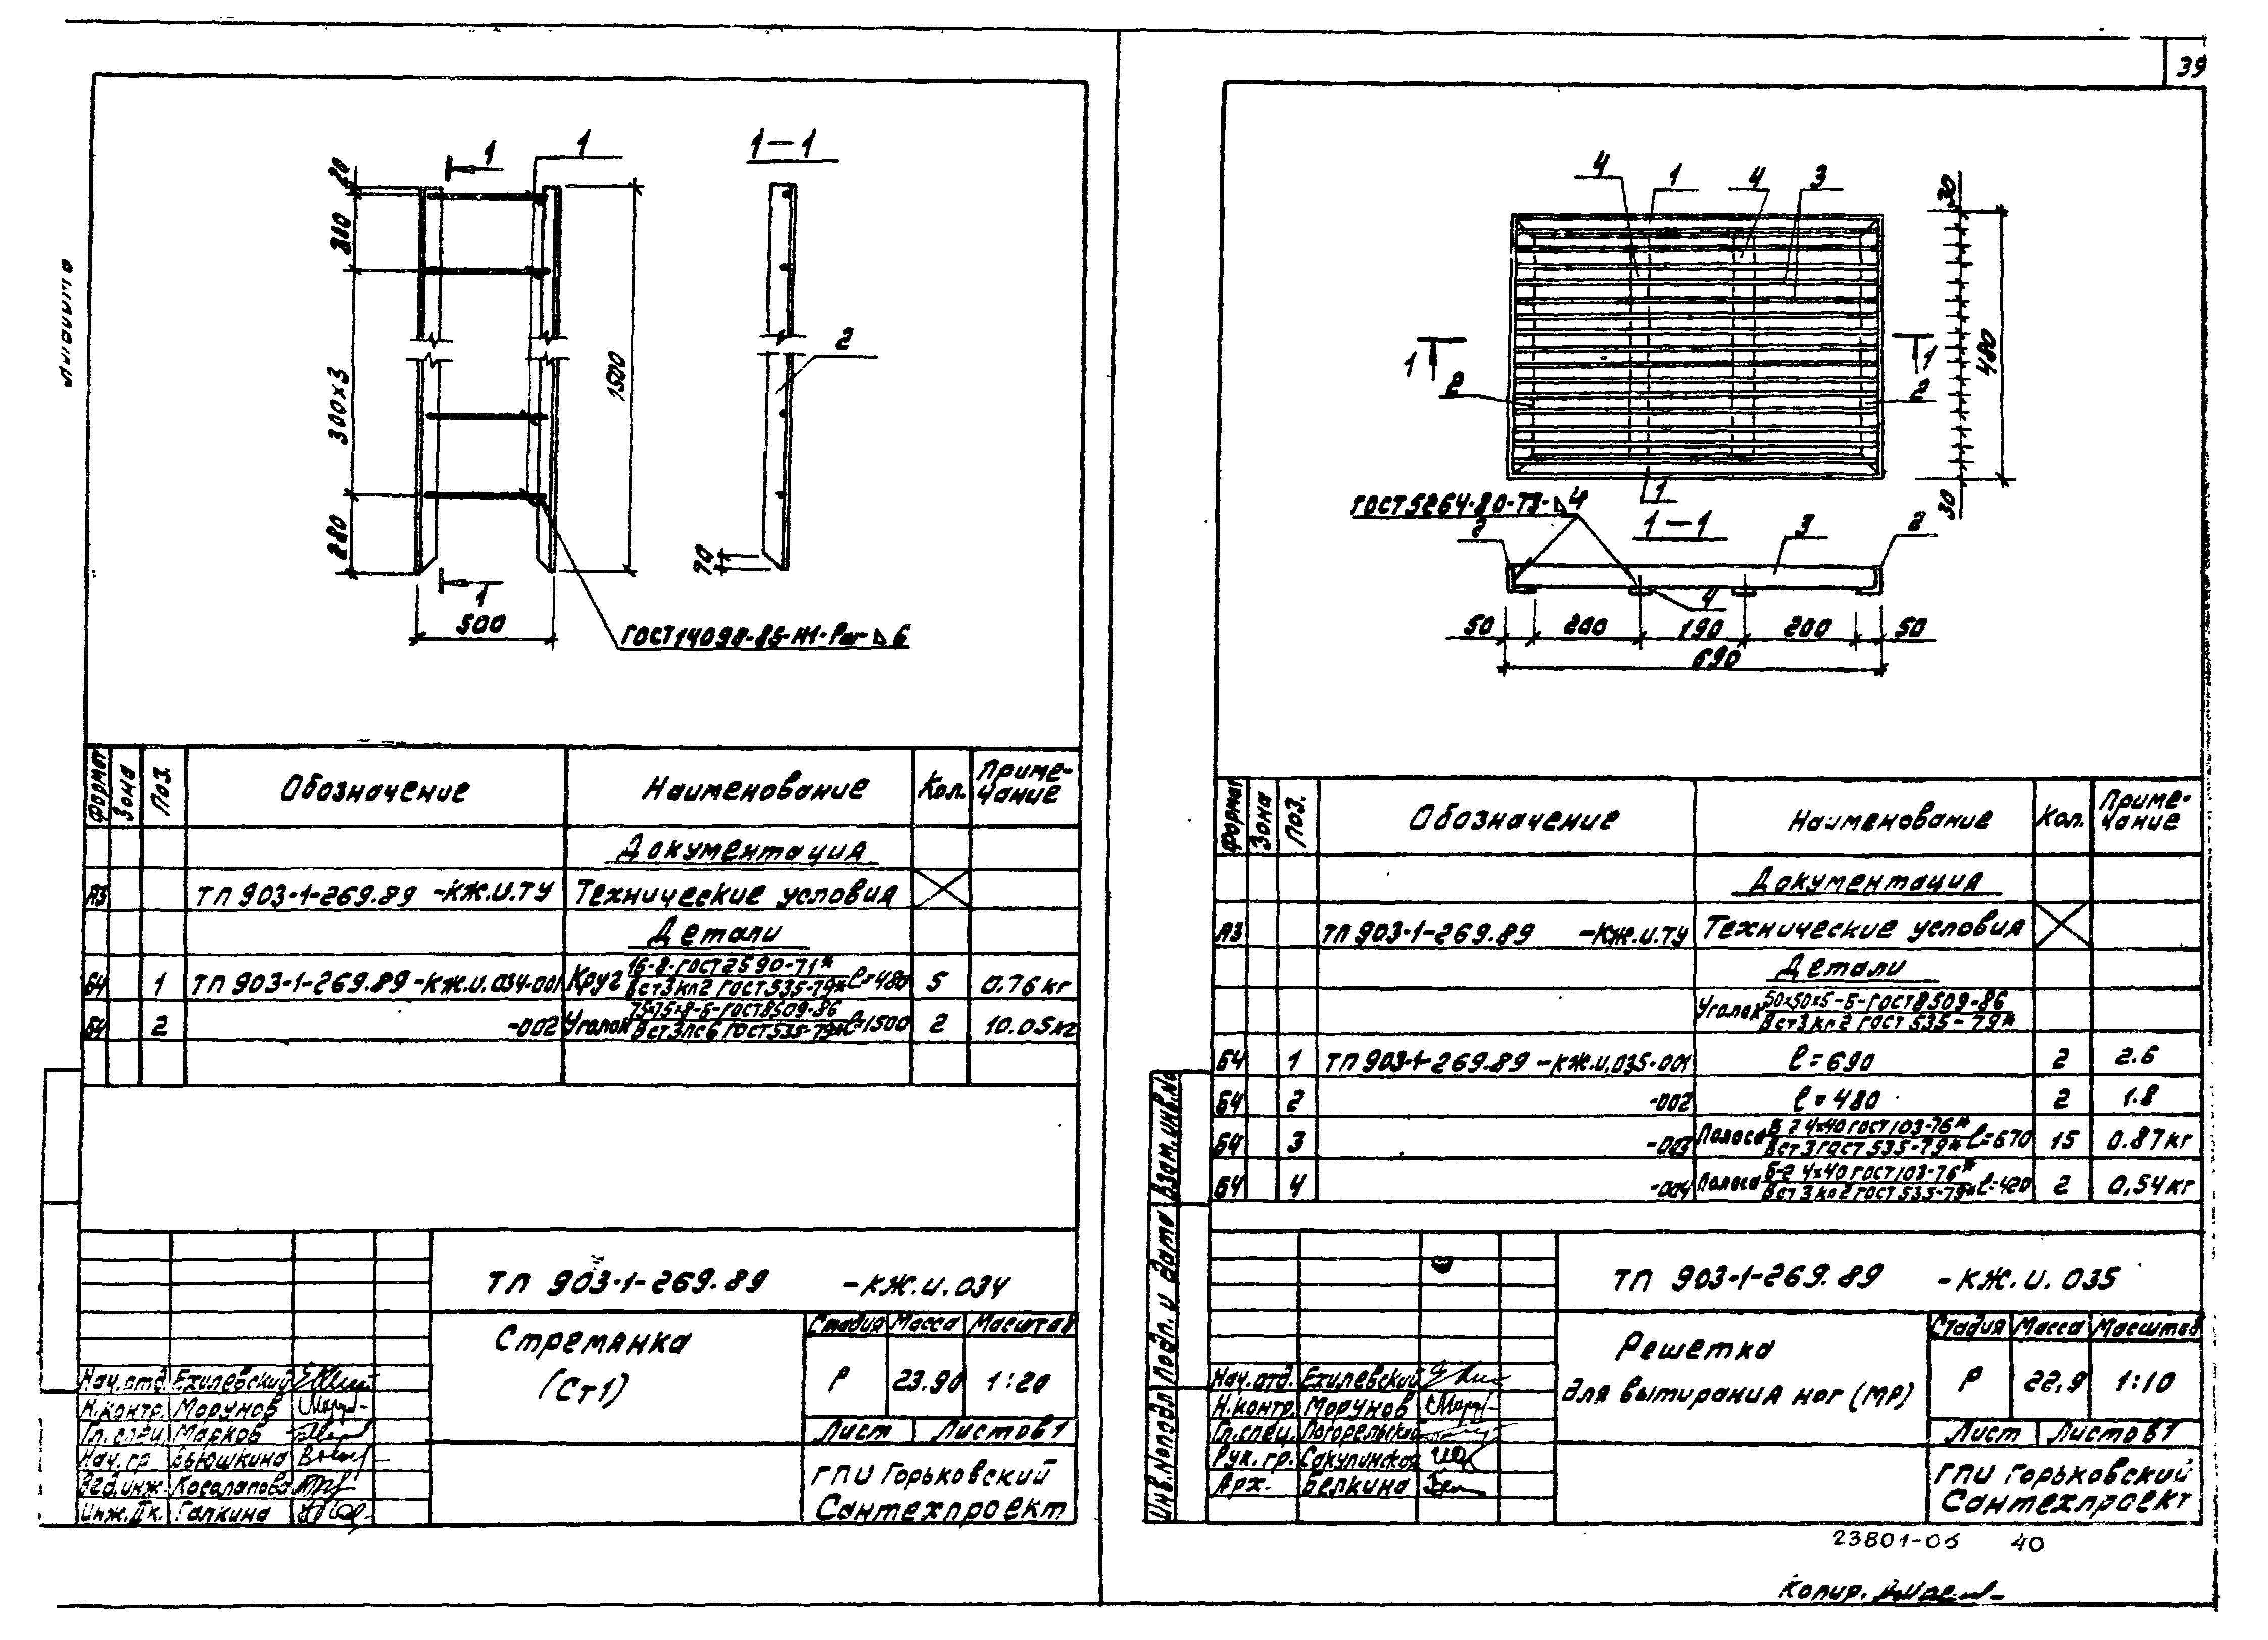 39
1
1
1-1
20
300
300×3
280
1500
2
70
1
500
ГОСТ 14098-85-Н1-Рш-⊿6
Формат Зона Поз. Обозначение Наименование Кол. Приме-
чание
Документация
А3 ТП 903-1-269.89 -КЖ.И.ТУ Технические условия
Детали
Б4 1 ТП 903-1-269.89-КЖ.И.034-001 Круг 16-В-ГОСТ 2590-71* / Вст3кп2 ГОСТ 535-79* ℓ=480 5 0.76 кг
Б4 2 -002 Уголок 75×75×8-Б-ГОСТ 8509-86 / Вст3пс6 ГОСТ 535-79* ℓ=1500 2 10.05 кг
ТП 903-1-269.89 -КЖ.И.034
Стремянка
(Ст1)
Стадия Масса Масштаб
Р 23.90 1:20
Лист Листов 1
ГПИ Горьковский
Сантехпроект
Нач.отд. Ехилевский
Н.контр. Морунов
Гл.спец. Марков
Нач.гр Вьюшкина
Вед.инж. Косолапова
Инж.IIк. Галкина
4 1 4 3
30
480
30
1 1
2 2
1
ГОСТ 5264-80-Т3-⊿4
1-1
2 3 2
4
50 200 190 200 50
690
Формат Зона Поз. Обозначение Наименование Кол. Приме-
чание
Документация
А3 ТП 903-1-269.89 -КЖ.И.ТУ Технические условия
Детали
Уголок 50×50×5-Б-ГОСТ 8509-86 / Вст3кп2 ГОСТ 535-79*
Б4 1 ТП 903-1-269.89-КЖ.И.035-001 ℓ=690 2 2.6
Б4 2 -002 ℓ=480 2 1.8
Б4 3 -003 Полоса Б-2 4×40 ГОСТ 103-76* / Вст3 ГОСТ 535-79* ℓ=670 15 0.87 кг
Б4 4 -004 Полоса Б-2 4×40 ГОСТ 103-76* / Вст3кп2 ГОСТ 535-79* ℓ=420 2 0,54 кг
ТП 903-1-269.89 -КЖ.И.035
Решетка
для вытирания ног (МР)
Стадия Масса Масштаб
Р 22,9 1:10
Лист Листов 1
ГПИ Горьковский
Сантехпроект
Нач.отд. Ехилевский
Н.контр. Морунов
Гл.спец. Погорельская
Рук.гр. Сакулинская
Арх. Белкина
Инв.№подл Подп. и дата Взам.инв.№
23801-06 40
Копир.